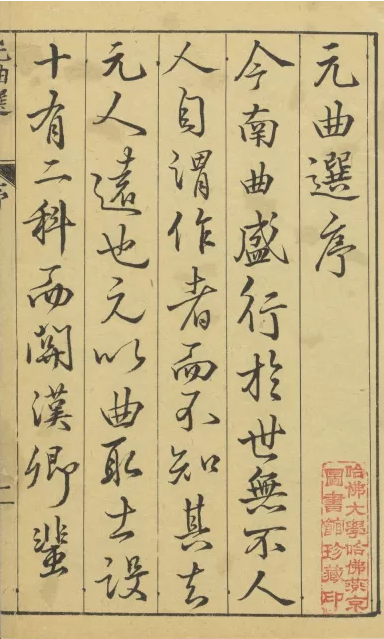 元曲選序
今南曲盛行於世無不人
人自謂作者而不知其去
元人遠也元以曲取士設
十有二科而關漢卿輩
元曲選
序
一
哈佛大學哈佛燕京
圖書館珍藏印